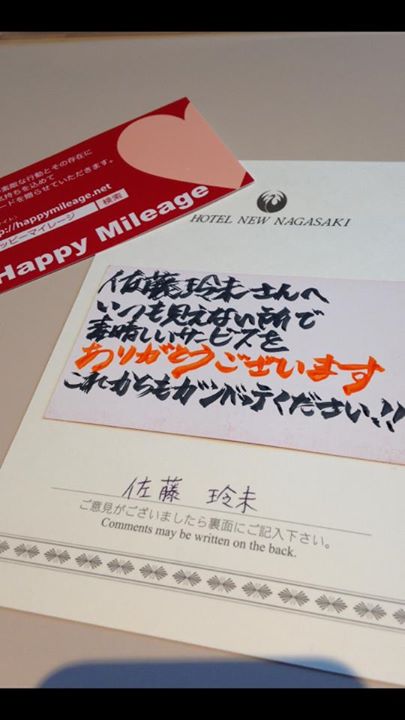 素敵な行動とその存在に
気持ちを込めて
カードを贈らせていただきます。
http://happymileage.net
ッピーマイレージ 検索
Happy Mileage
HOTEL NEW NAGASAKI
佐藤玲未さんへ
いつも見えない所で
素晴しいサービスを
ありがとうございます
これからもガンバッテください!!
佐藤 玲未
ご意見がございましたら裏面にご記入下さい。
Comments may be written on the back.